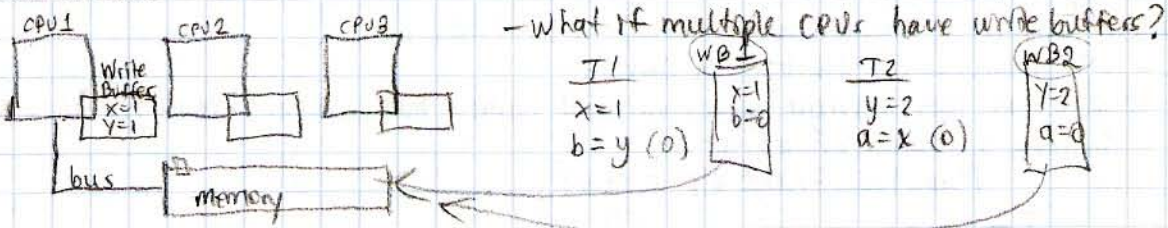 CPU1 CPU2 CPU3
Write
Buffer
x=1
y=1
bus
memory
- What if multiple CPUs have write buffers?
T1 WB1 T2 WB2
x=1 x=1 y=2 y=2
b=y (0) b=0 a=x (0) a=0